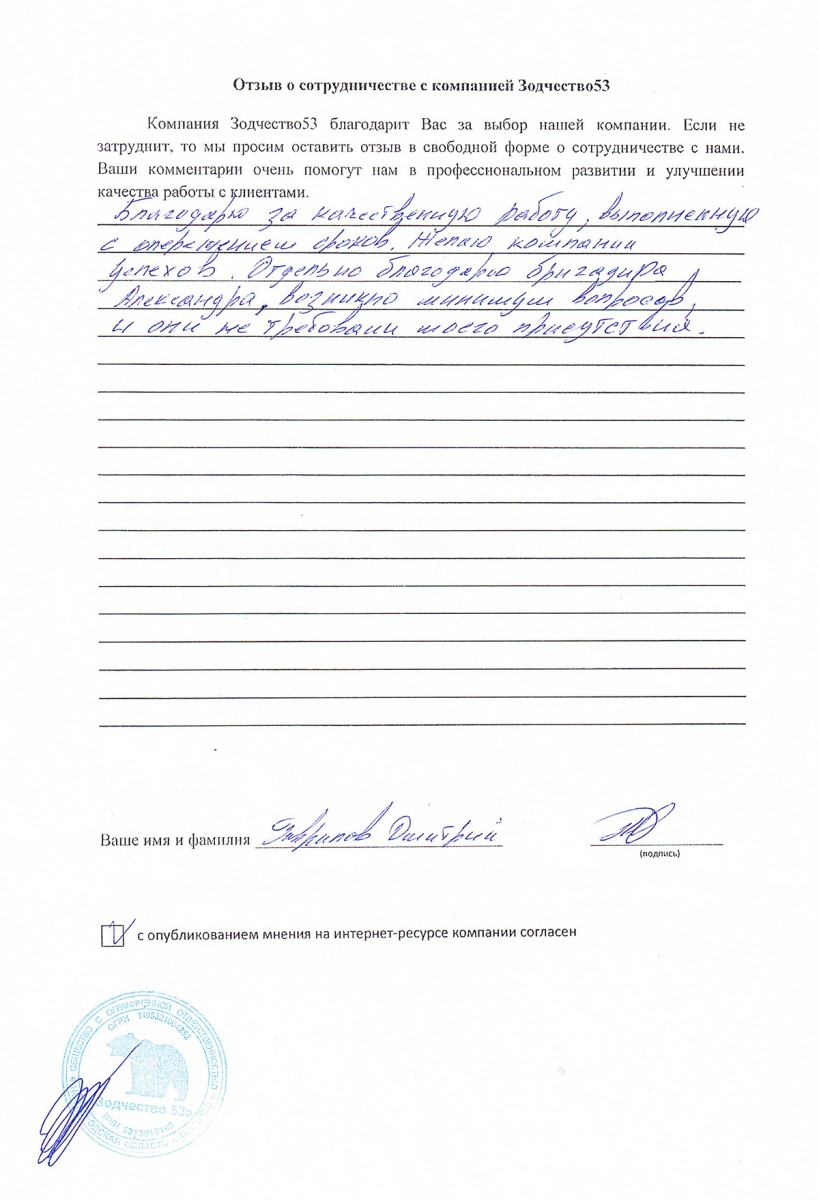 Отзыв о сотрудничестве с компанией Зодчество53
Компания Зодчество53 благодарит Вас за выбор нашей компании. Если не
затруднит, то мы просим оставить отзыв в свободной форме о сотрудничестве с нами.
Ваши комментарии очень помогут нам в профессиональном развитии и улучшении
качества работы с клиентами.
Благодарю за качественную работу, выполненную
с опережением сроков. Желаю компании
успехов. Отдельно благодарю бригадира
Александра, возникло минимум вопросов,
и они не требовали моего присутствия.
Ваше имя и фамилия Гаврилов Дмитрий
(подпись)
с опубликованием мнения на интернет-ресурсе компании согласен
ОБЩЕСТВО С ОГРАНИ�ченной ОТВЕТСТВЕННОСТЬЮ
ОГРН
Зодчество 53»
ИНН
ОБЛАСТЬ